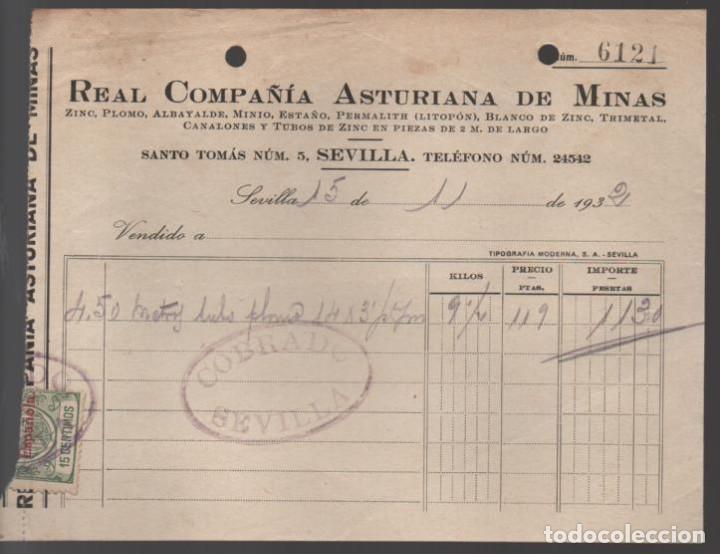 Núm. 6121
REAL COMPAÑÍA ASTURIANA DE MINAS
ZINC, PLOMO, ALBAYALDE, MINIO, ESTAÑO, PERMALITH (LITOPÓN), BLANCO DE ZINC, TRIMETAL,
CANALONES Y TUBOS DE ZINC EN PIEZAS DE 2 M. DE LARGO
SANTO TOMÁS NÚM. 5, SEVILLA. TELÉFONO NÚM. 24542
Sevilla 15 de 11 de 1932
Vendido a
TIPOGRAFIA MODERNA, S. A.-SEVILLA
KILOS PRECIO IMPORTE
PTAS. PESETAS
4.50 metros tubo plomo 14 119 1130
COBRADO
SEVILLA
PAÑIA ASTURIANA DE MINAS
RE
Española
15 CENTIMOS
todocoleccion